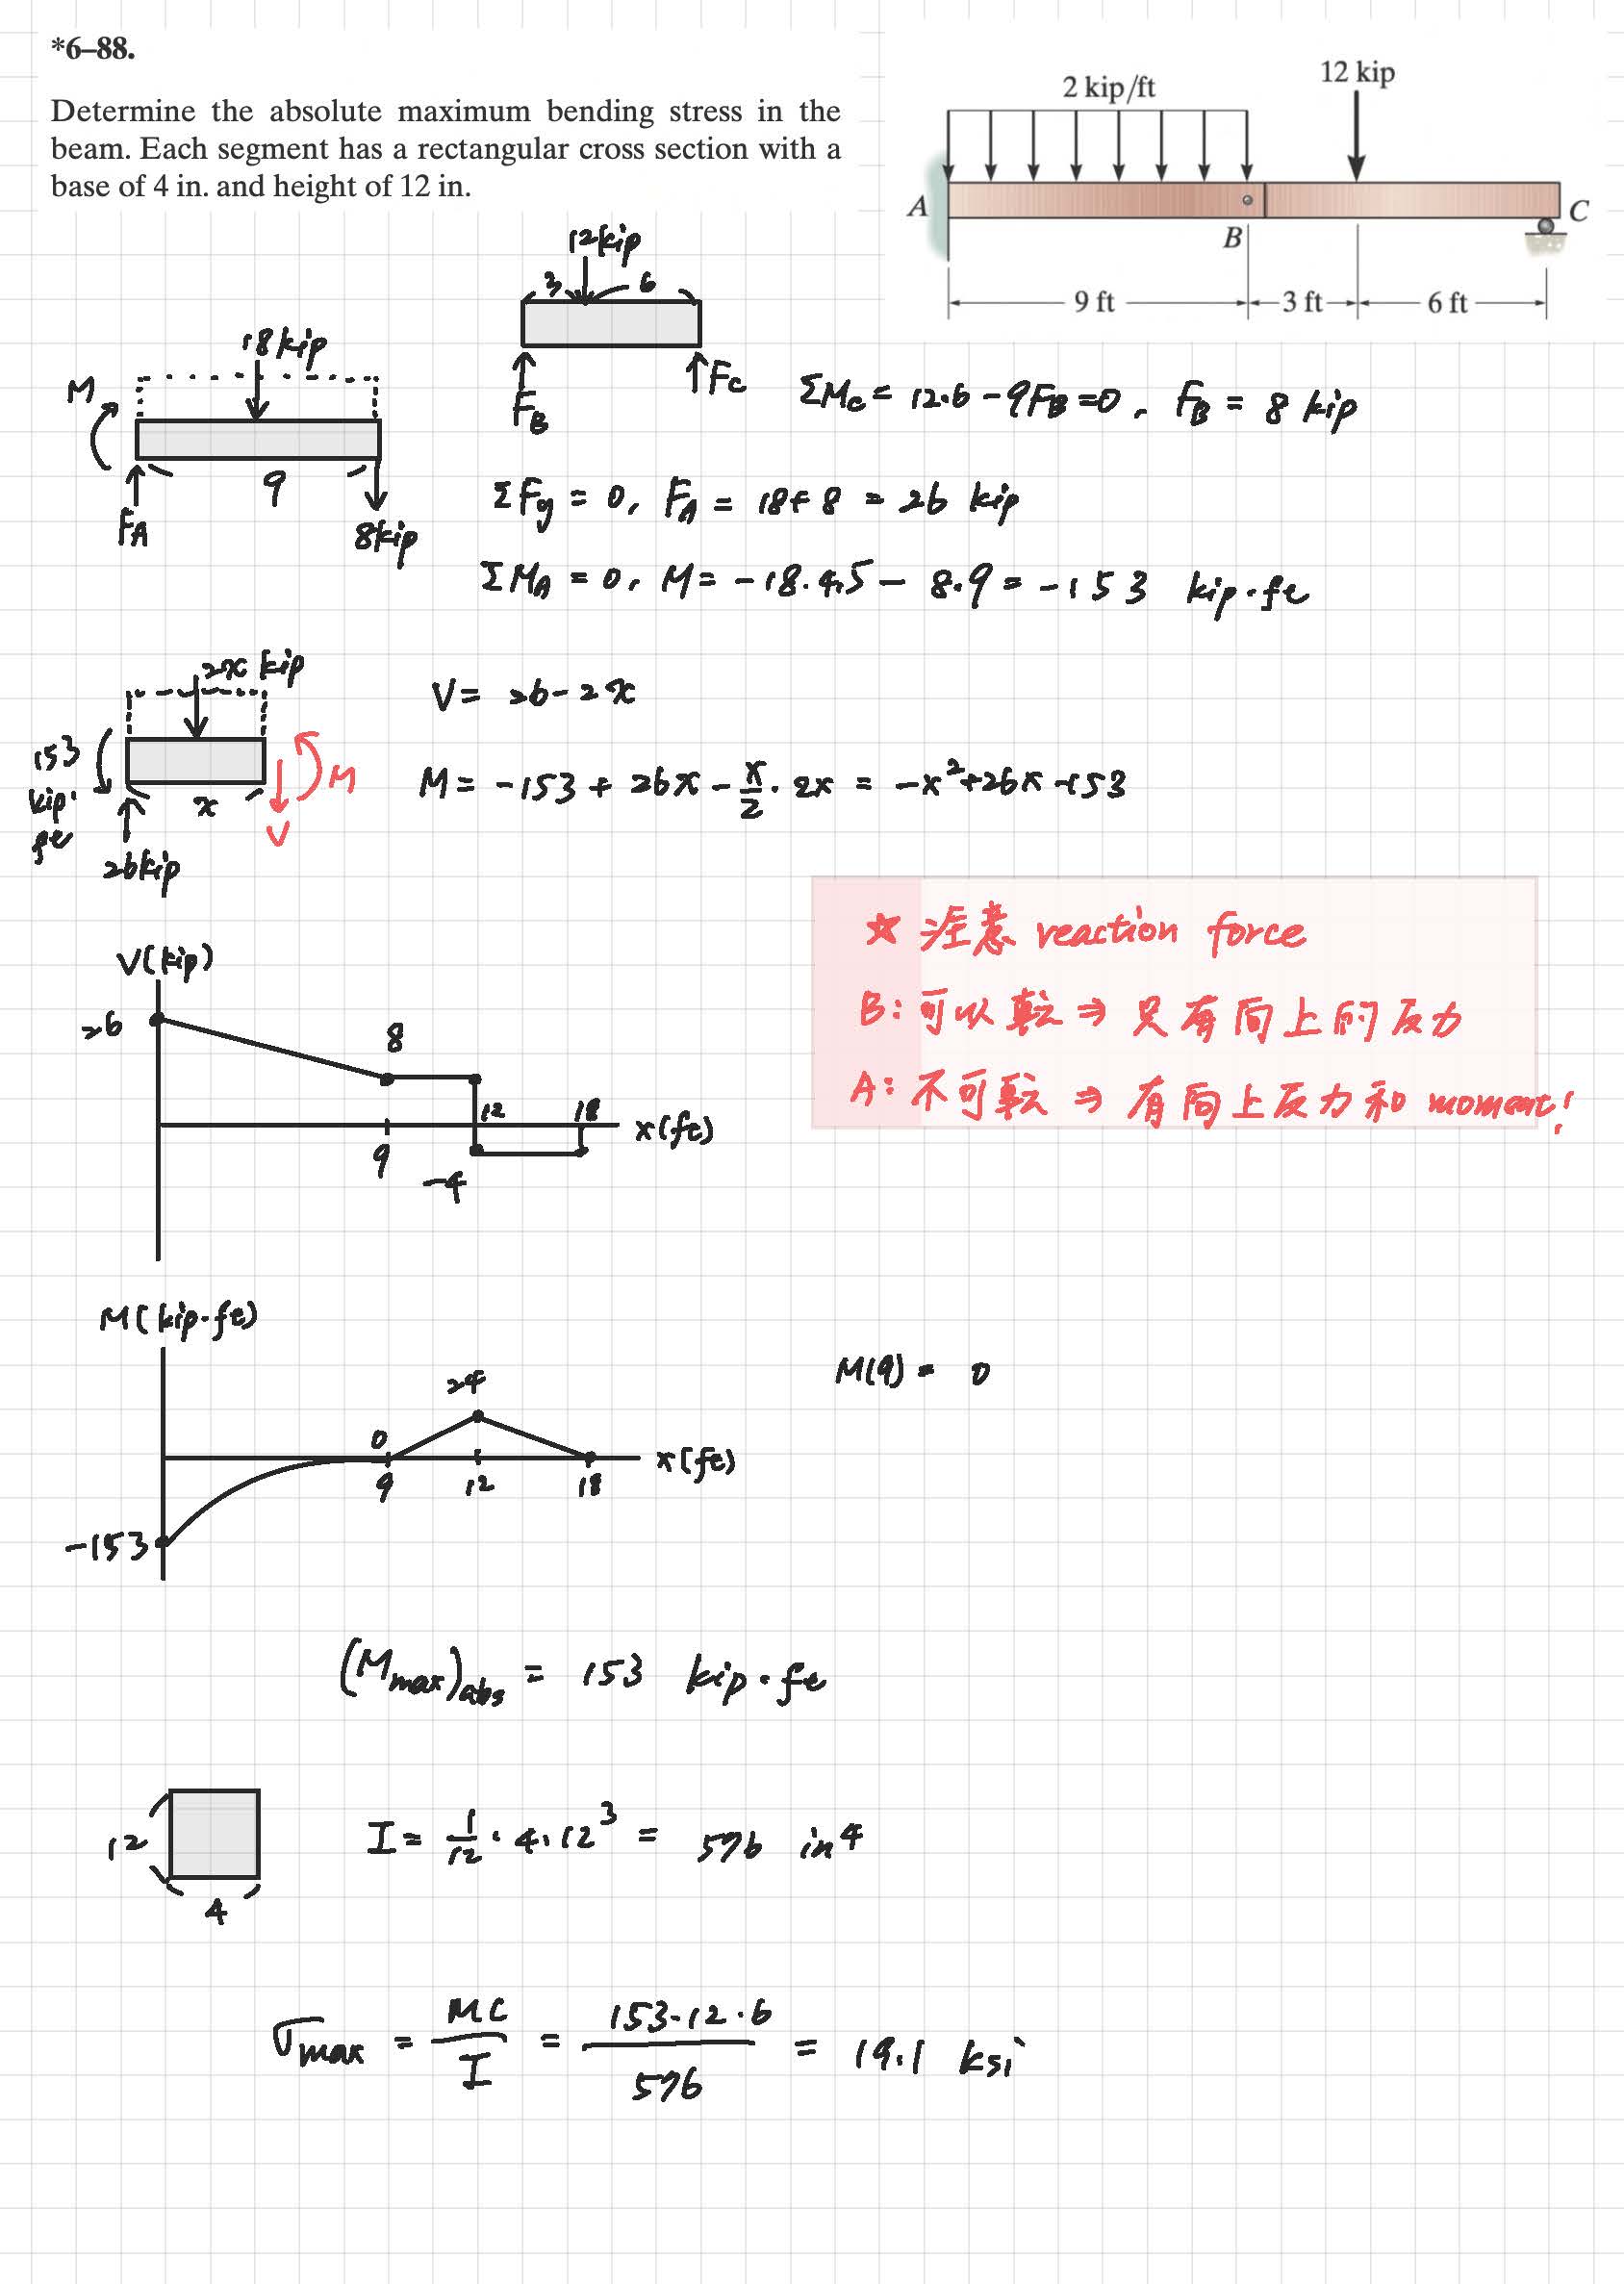 *6–88.
Determine the absolute maximum bending stress in the
beam. Each segment has a rectangular cross section with a
base of 4 in. and height of 12 in.
12 kip
2 kip/ft
A
B
C
9 ft
3 ft
6 ft
12kip
3 6
F_B
F_C
18kip
M
9
F_A
8kip
ΣM_C = 12·6 - 9F_B = 0, F_B = 8 kip
ΣF_y = 0, F_A = 18+8 = 26 kip
ΣM_A = 0, M = -18·4.5 - 8·9 = -153 kip·ft
2x kip
153
kip·
ft
x
M
V
26kip
V = 26-2x
M = -153 + 26x - x/2 · 2x = -x²+26x-153
☆ 注意 reaction force
B: 可以転 ⇒ 只有向上的反力
A: 不可転 ⇒ 有向上反力和 moment!
V(kip)
26
8
12
18
x(ft)
9
-4
M(kip·ft)
24
0
x(ft)
9
12
18
-153
M(9) = 0
(M_max)_abs = 153 kip·ft
12
4
I = 1/12 · 4·12³ = 576 in⁴
σ_max = MC/I = 153·12·6/576 = 19.1 ksi